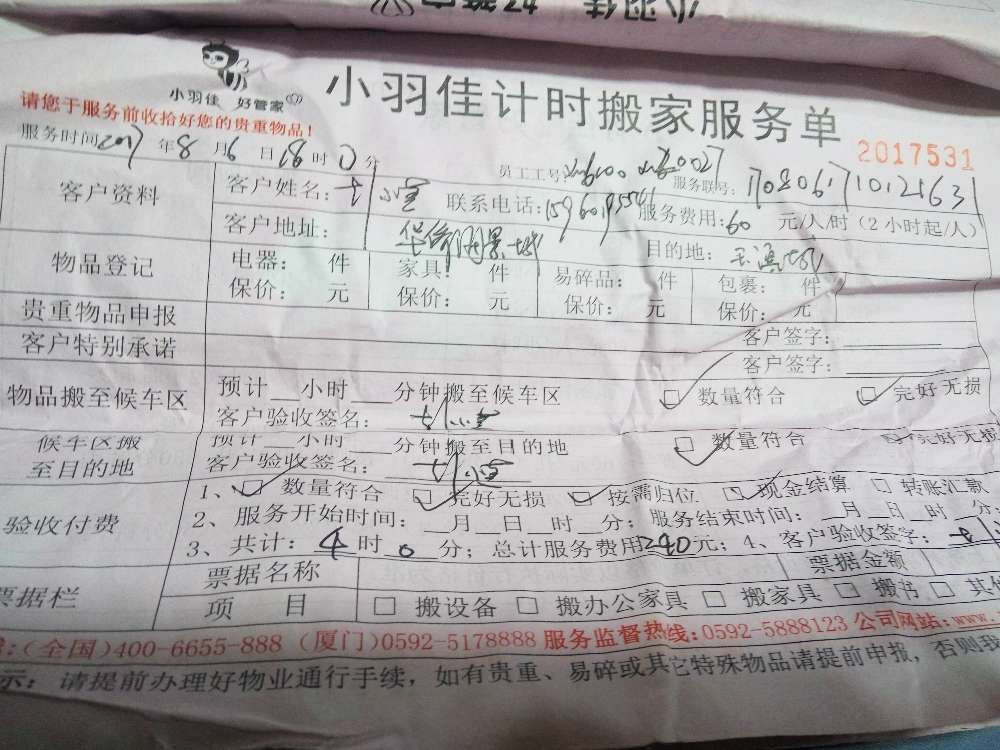 小羽佳 好管家
小羽佳计时搬家服务单
请您于服务前收拾好您的贵重物品！
2017531
服务时间2017年8月6日18时0分 员工工号： 服务联号：
客户资料 客户姓名： 小 联系电话： 服务费用：60元/人/时（2小时起/人）
客户地址：华侨 景城 目的地：
物品登记 电器： 件 家具： 件 易碎品： 件 包裹： 件
保价： 元 保价： 元 保价： 元 保价： 元
贵重物品申报 客户签字：
客户特别承诺 客户签字：
物品搬至候车区 预计__小时__分钟搬至候车区 □数量符合 □完好无损
客户验收签名：
候车区搬至目的地 预计__小时__分钟搬至目的地 □数量符合 □完好无损
客户验收签名：
验收付费 1、□数量符合 □完好无损 □按需归位 □现金结算 □转账汇款
2、服务开始时间：__月__日__时__分；服务结束时间：__月__日__时__分；
3、共计：4时0分；总计服务费用240元；4、客户验收签字：
票据栏 票据名称 票据金额
项 目 □搬设备 □搬办公家具 □搬家具 □搬书 □其
：（全国）400-6655-888（厦门）0592-5178888 服务监督热线：0592-5888123 公司网站：www.
示：请提前办理好物业通行手续，如有贵重、易碎或其它特殊物品请提前申报，否则我